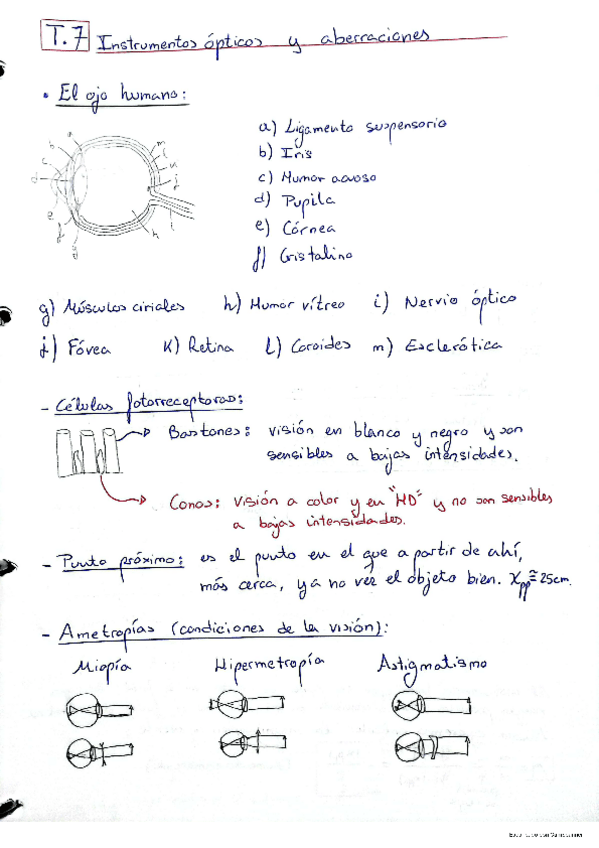 T.7 Instrumentos ópticos y aberraciones
• El ojo humano:
a) Ligamento suspensorio
b) Íris
c) Humor acuoso
d) Pupila
e) Córnea
f) Cristalino
g) Músculos ciriales h) Humor vítreo i) Nervio óptico
j) Fóvea K) Retina l) Coroides m) Esclerótica
- Células fotorreceptoras:
Bastones: visión en blanco y negro y son
sensibles a bajas intensidades.
Conos: visión a color y en "HD" y no son sensibles
a bajas intensidades.
- Punto próximo: es el punto en el que a partir de ahí,
más cerca, ya no ves el objeto bien. Xpp ≅ 25cm.
- Ametropías (condiciones de la visión):
Miopía Hipermetropía Astigmatismo